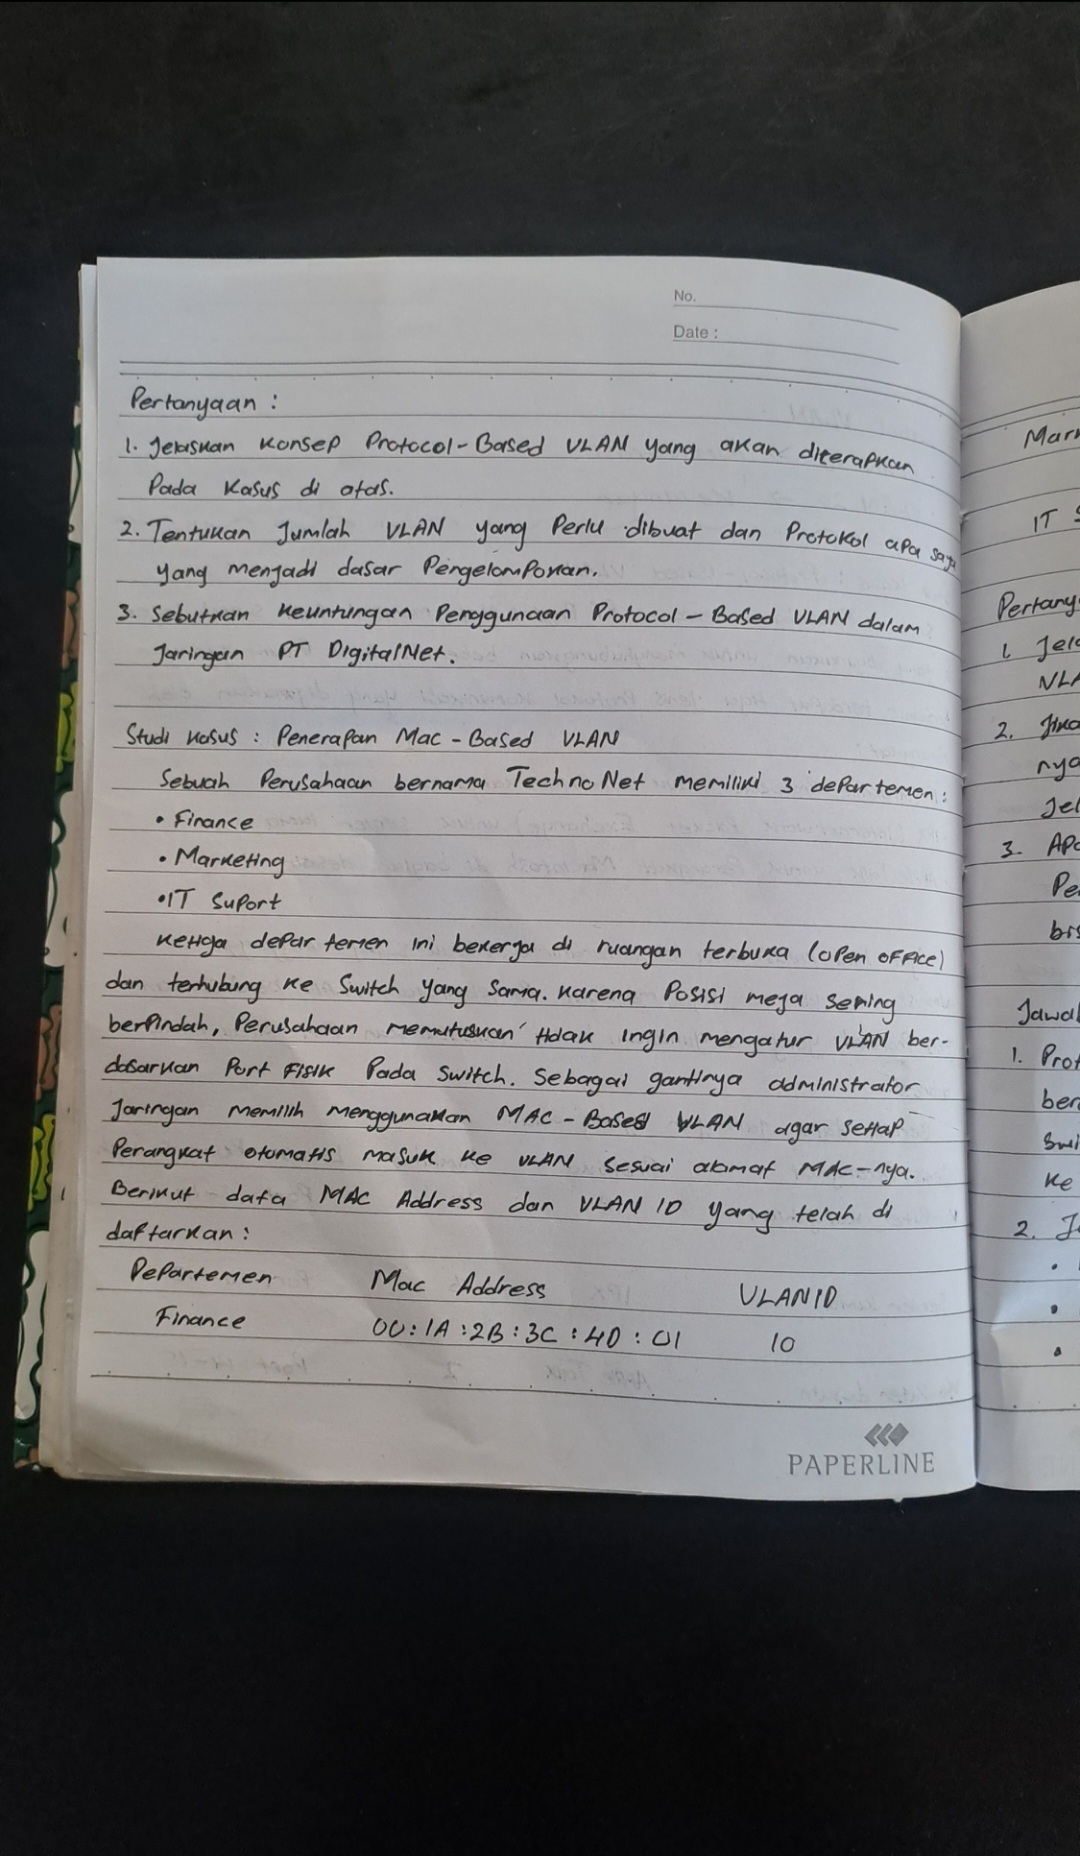 No.
Date :
Pertanyaan :
1. Jelaskan Konsep Protocol-Based VLAN yang akan diterapkan
Pada Kasus di atas.
2. Tentukan Jumlah VLAN yang Perlu dibuat dan Protokol apa saja
yang menjadi dasar Pengelompokan.
3. Sebutkan Keuntungan Penggunaan Protocol-Based VLAN dalam
Jaringan PT DigitalNet.
Studi Kasus : Penerapan Mac-Based VLAN
Sebuah Perusahaan bernama TechnoNet memiliki 3 departemen :
• Finance
• Marketing
• IT Suport
Ketiga departemen ini bekerja di ruangan terbuka (open office)
dan terhubung ke Switch yang sama. Karena Posisi meja sering
berpindah, Perusahaan memutuskan tidak ingin mengatur VLAN ber-
dasarkan Port Fisik Pada Switch. Sebagai gantinya administrator
Jaringan memilih menggunakan MAC-Based VLAN agar setiap
Perangkat otomatis masuk ke VLAN sesuai alamat MAC-nya.
Berikut data MAC Address dan VLAN ID yang telah di
daftarkan :
Departemen Mac Address VLAN ID
Finance 00:1A:2B:3C:4D:01 10
PAPERLINE
Mar
IT S
Pertany
1. Jela
VLA
2. Jika
nya
Jel
3. Apa
Pe
bis
Jawa
1. Prot
ber
Swi
Ke
2. J